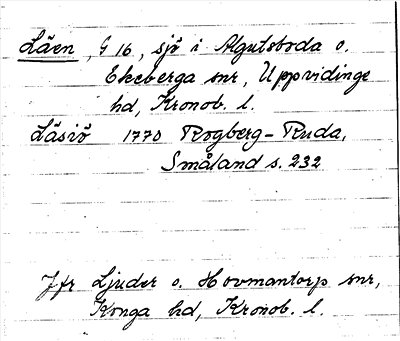 Läen, G 16, sjö i Algutsboda o.
Ekeberga snr, Uppvidinge
hd, Kronob. l.
Läsiö 1770 Rogberg-Ruda,
Småland s. 232
Jfr Ljuder o. Hovmantorp snr,
Konga hd, Kronob. l.